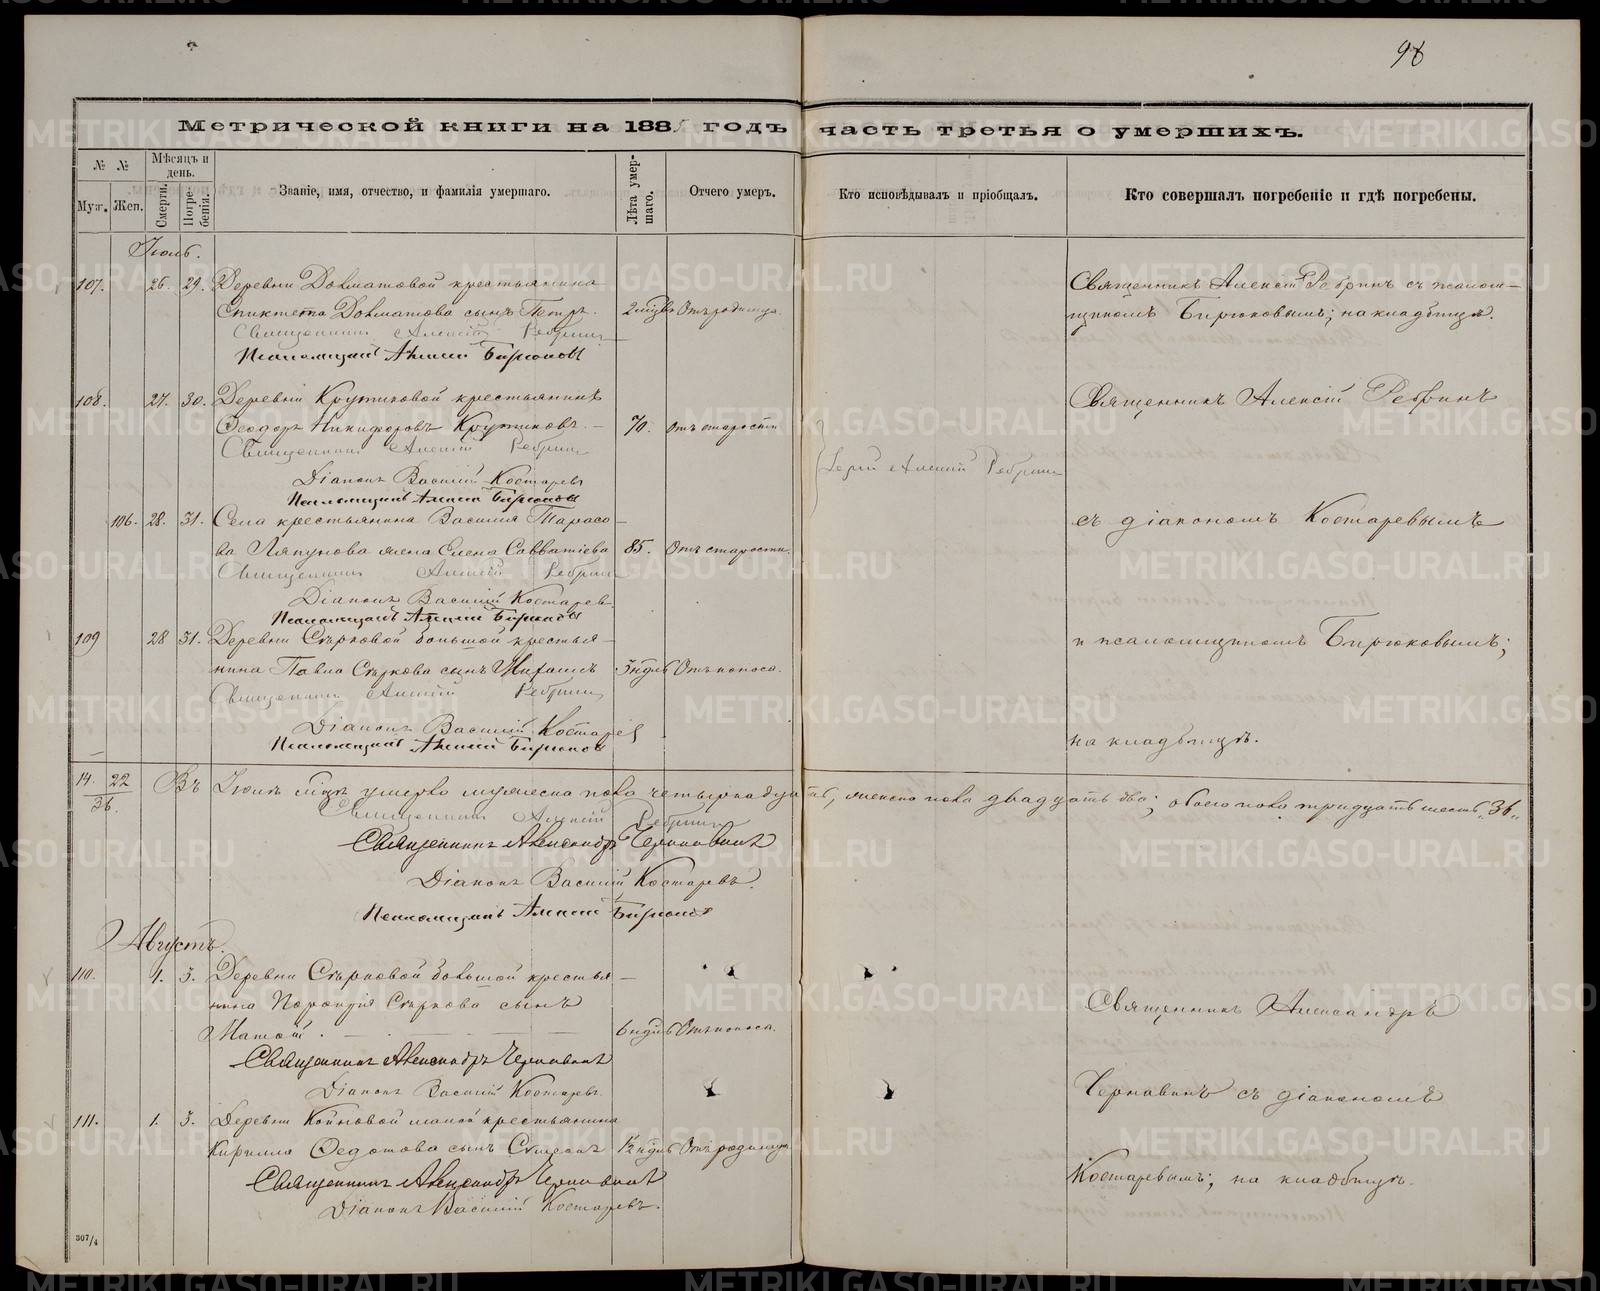 98
Метрической книги на 188 годъ часть третья о умершихъ.
№ №
Муж. Жен.
Мѣсяцъ и день.
Смерти. Погребенія.
Званіе, имя, отчество, и фамилія умершаго.
Лѣта умершаго.
Отчего умеръ.
Кто исповѣдывалъ и пріобщалъ.
Кто совершалъ погребеніе и гдѣ погребены.
Іюль.
107. 26. 29. Деревни Долматовой крестьянина
Долматова сынъ Петръ. 2 Отъ родимца.
Священникъ Алексій Ребринъ
Псаломщикъ Алексій Бирюковъ
Священникъ Алексій Ребринъ съ псалом-
щикомъ Бирюковымъ; на кладбищѣ.
108. 27. 30. Деревни Крутиковой крестьянинъ
Ѳеодоръ Никифоровъ Крутиковъ. 70. Отъ старости
Священникъ Алексій Ребринъ
Діаконъ Василій Костаревъ
Псаломщикъ Алексій Бирюковъ
Іерей Алексій Ребринъ
Священникъ Алексій Ребринъ
106. 28. 31. Села крестьянина Василія Тарасо-
ва Ляпунова жена Елена Савватіева 85. Отъ старости.
Священникъ Алексій Ребринъ
Діаконъ Василій Костаревъ
Псаломщикъ Алексій Бирюковъ
съ діакономъ Костаревымъ
109 28 31. Деревни Сѣрковой большой крестья-
нина Павла Сѣркова сынъ 3 нед Отъ поноса.
Священникъ Алексій Ребринъ
Діаконъ Василій Костаревъ
Псаломщикъ Алексій Бирюковъ
и псаломщикомъ Бирюковымъ;
на кладбищѣ.
14. 22
36.
Въ Іюлѣ мцѣ умерло мужеска пола четырнадцать, женска пола двадцать два; обоего пола тридцать шесть „36„
Священникъ Алексій Ребринъ
Священникъ Александръ Чернавинъ
Діаконъ Василій Костаревъ.
Псаломщикъ Алексій Бирюковъ
Августъ.
110. 1. 3. Деревни Сѣрковой большой крестья-
нина Сѣркова сынъ
Матѳій. 6 нед Отъ поноса.
Священникъ Александръ Чернавинъ
Діаконъ Василій Костаревъ.
Священникъ Александръ
Чернавинъ съ діакономъ
Костаревымъ; на кладбищѣ.
111. 1. 3. Деревни малой крестьянина
Кирилла Ѳедотова сынъ 1½ нед Отъ родимца
Священникъ Александръ Чернавинъ
Діаконъ Василій Костаревъ.
307/4
METRIKI.GASO-URAL.RU